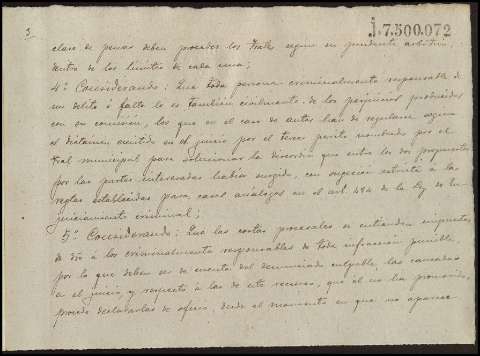 3
1.7.500.072
clase de penas deben proceder los Trales segun su prudente arbitrio,
dentro de los limites de cada una;
4º Considerando: Que toda persona criminalmente responsable de
un delito ó falta lo es tambien civilmente de los perjuicios producidos
con su comisión, los que en el caso de autos han de regularse segun
el dictamen emitido en el juicio por el tercer perito nombrado por el
Tral municipal para solucionar la discordia que entre los dos propuestos
por las partes interesadas habia surgido, con sujeción estricta á las
reglas establecidas para casos análogos en el art. 484 de la Ley de En-
juiciamiento criminal;
5º Considerando: Que las costas procesales se entienden impuestas
de dro á los criminalmente responsables de toda infracción punible,
por lo que deben ser de cuenta del denunciado culpable, las causadas
en el juicio, y respecto á las de este recurso, que él no ha promovido,
procede declararlas de oficio, desde el momento en que no aparece